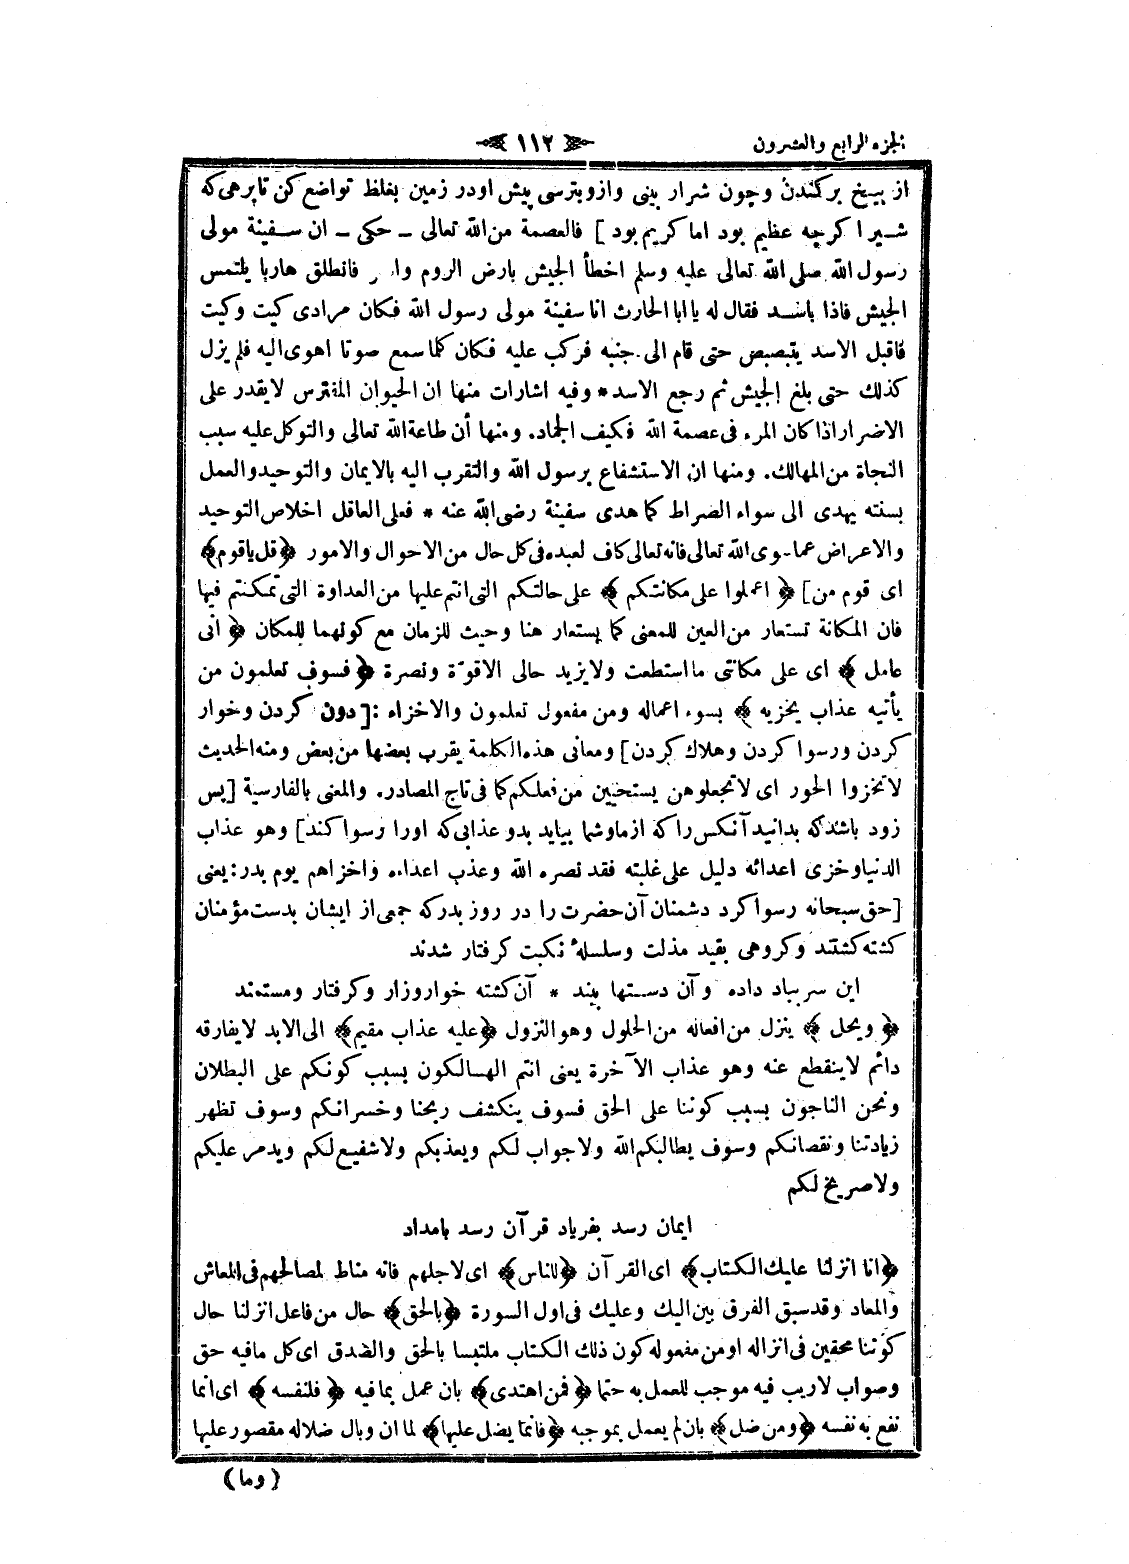 الجزء الرابع والعشرون
١١٢
از بيخ بركندن وچون شرار بينى وازو بترسى پيش اودر زمين بغلظ تواضع كن تابرهى كه
شيرا كرچه عظيم بود اما كريم بود ] فالعصمة من الله تعالى ـ حكى ـ ان سفينة مولى
رسول الله صلى الله تعالى عليه وسلم اخطأ الجيش بارض الروم فانطلق هاربا يلتمس
الجيش فاذا باسد فقال له يا ابا الحارث انا سفينة مولى رسول الله فكان مرادى كيت وكيت
فاقبل الاسد يتبصبص حتى قام الى جنبه فركب عليه فكان كلما سمع صوتا اهوى اليه فلم يزل
كذلك حتى بلغ الجيش ثم رجع الاسد * وفيه اشارات منها ان الحيوان المفترس لايقدر على
الاضرار اذا كان المرء فى عصمة الله فكيف الجماد. ومنها أن طاعة الله تعالى والتوكل عليه سبب
النجاة من المهالك. ومنها ان الاستشفاع برسول الله والتقرب اليه بالايمان والتوحيد والعمل
بسنته يهدى الى سواء الصراط كما هدى سفينة رضى الله عنه * فعلى العاقل اخلاص التوحيد
والاعراض عما سوى الله تعالى فانه تعالى كاف لعبده فى كل حال من الاحوال والامور ﴿قل ياقوم﴾
اى قوم من] ﴿ اعملوا على مكانتكم ﴾ على حالتكم التى انتم عليها من العداوة التى تمكنتم فيها
فان المكانة تستعار من العين للمعنى كما يستعار هنا وحيث للزمان مع كونهما للمكان ﴿ انى
عامل ﴾ اى على مكانتى ما استطعت ولايزيد حالى الاقوّة ونصرة ﴿ فسوف تعلمون من
يأتيه عذاب يخزيه ﴾ بسوء اعماله ومن مفعول تعلمون والاخزاء :[ دون كردن وخوار
كردن ورسوا كردن وهلاك كردن] ومعانى هذه الكلمة يقرب بعضها من بعض ومنه الحديث
لاتخزوا الحور اى لاتجعلوهن يستحيين من فعلكم كما فى تاج المصادر. والمعنى بالفارسية [پس
زود باشدكه بدانيد آنكس راكه ازما وشما بيايد بدو عذابى كه اورا رسوا كند] وهو عذاب
الدنيا وخزى اعدائه دليل على غلبته فقد نصره الله وعذب اعداءه واخزاهم يوم بدر: يعنى
[حق سبحانه رسوا كرد دشمنان آن حضرت را در روز بدركه جمى از ايشان بدست مؤمنان
كشته كشتند وكروهى بقيد مذلت وسلسلهٔ نكبت كرفتار شدند
اين سربباد داده وآن دستها ببند * آن كشته خوار وزار وكرفتار ومستمند
﴿ ويحل ﴾ ينزل من افعاله من الحلول وهو النزول ﴿ عليه عذاب مقيم﴾ الى الابد لايفارقه
دائم لاينقطع عنه وهو عذاب الآخرة يعنى انتم الهالكون بسبب كونكم على البطلان
ونحن الناجون بسبب كوننا على الحق فسوف ينكشف ربحنا وخسرانكم وسوف تظهر
زيادتنا ونقصانكم وسوف يطالبكم الله ولاجواب لكم ويعذبكم ولاشفيع لكم ويدمر عليكم
ولاصريخ لكم
ايمان رسد بفرياد قرآن رسد بامداد
﴿انا انزلنا عليك الكتاب﴾ اى القرآن ﴿للناس﴾ اى لاجلهم فانه مناط لمصالحهم فى المعاش
والمعاد وقدسبق الفرق بين اليك وعليك فى اول السورة ﴿بالحق﴾ حال من فاعل انزلنا حال
كوننا محقين فى انزاله او من مفعوله كون ذلك الكتاب ملتبسا بالحق والصدق اى كل مافيه حق
وصواب لاريب فيه موجب للعمل به حتما ﴿فمن اهتدى﴾ بان عمل بمافيه ﴿ فلنفسه ﴾ اى انما
نفع به نفسه ﴿ومن ضل﴾ بان لم يعمل بموجبه ﴿فانما يضل عليها﴾ لما ان وبال ضلاله مقصور عليها
(وما)